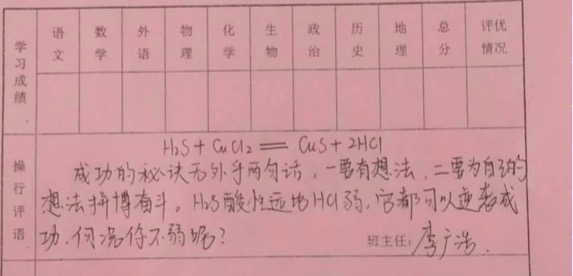 学习成绩 语文 数学 外语 物理 化学 生物 政治 历史 地理 总分 评优情况
操行评语
H₂S + CuCl₂ == CuS + 2HCl
成功的秘诀无外乎两句话，一要有想法，二要为自己的
想法拼博奋斗。H₂S酸性远比HCl弱，它都可以逆袭成
功，何况你不弱呢？
班主任：李广浩.